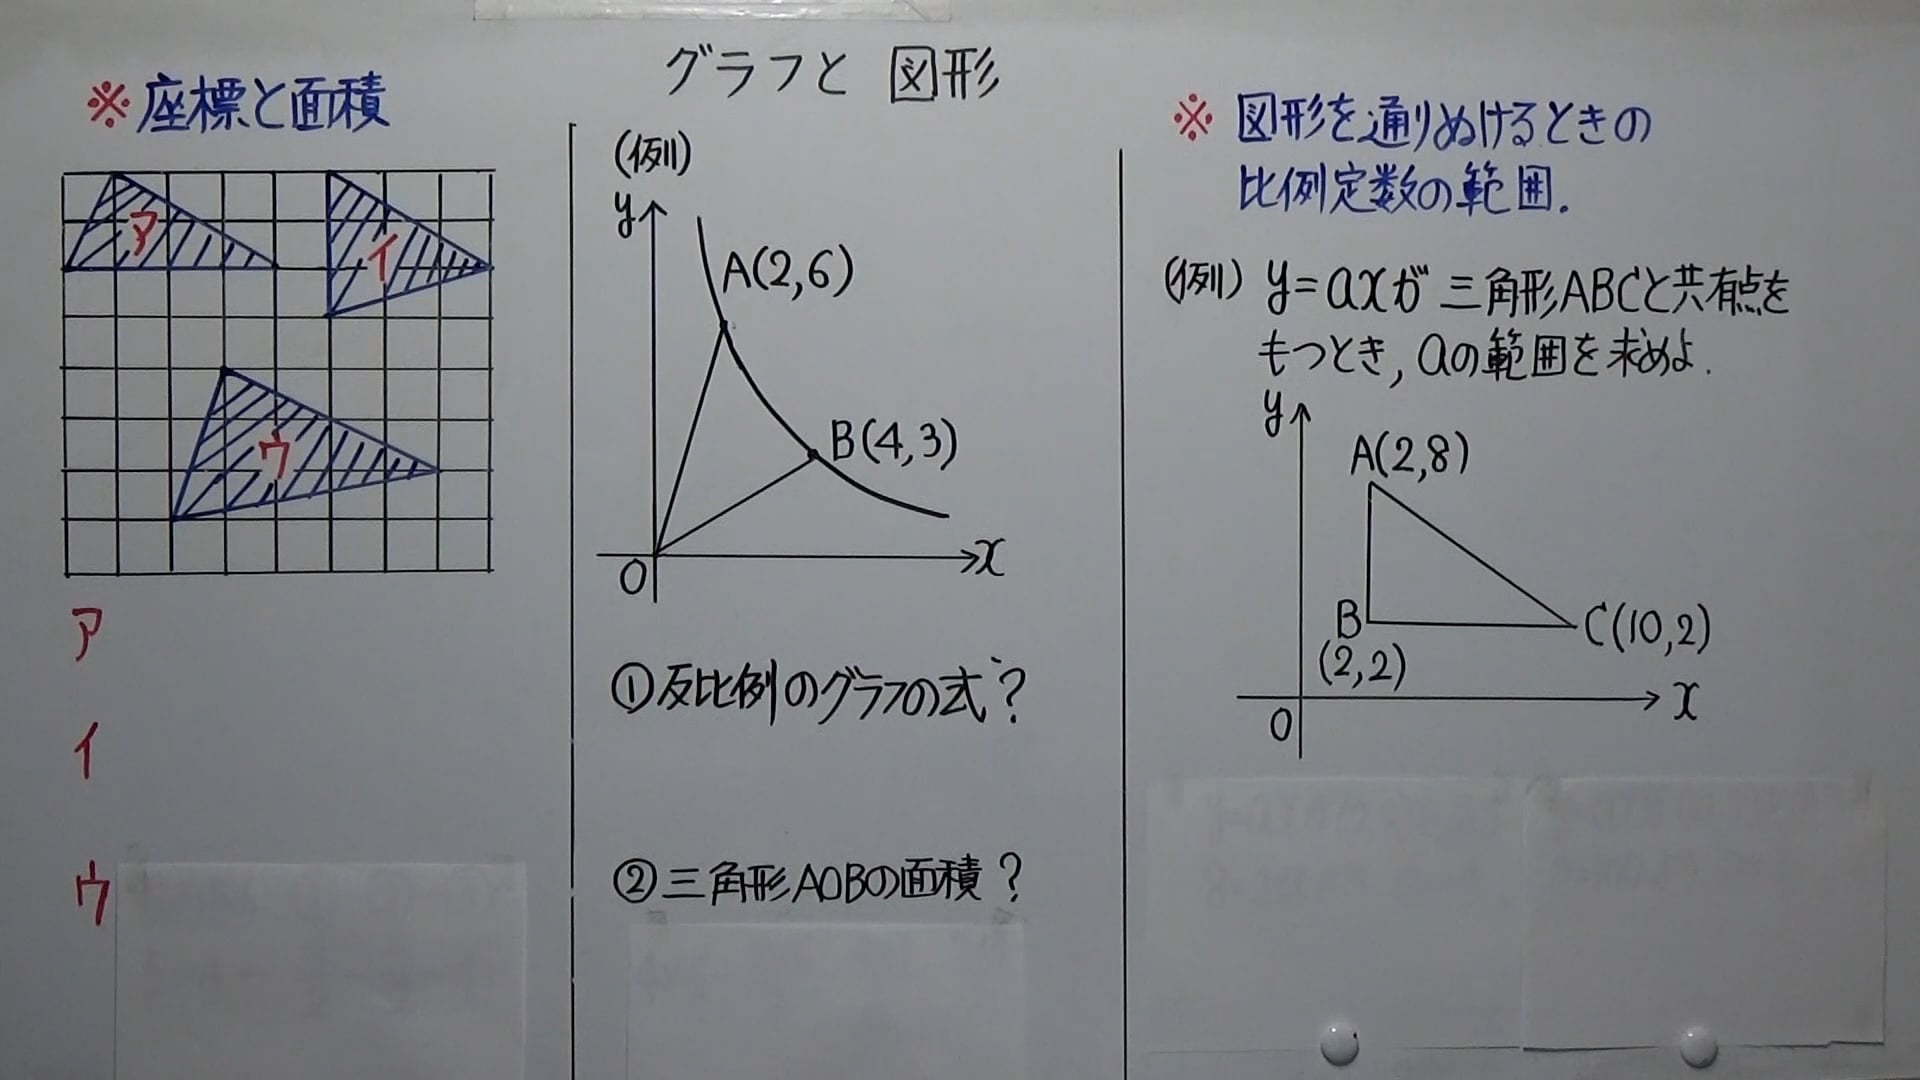 グラフと 図形
※座標と面積
ア
イ
ウ
ア
イ
ウ
(例)
y
A(2,6)
B(4,3)
O
x
①反比例のグラフの式?
②三角形AOBの面積?
※ 図形を通りぬけるときの
比例定数の範囲.
(例) y=axが三角形ABCと共有点を
もつとき,aの範囲を求めよ.
y
A(2,8)
B
(2,2)
C(10,2)
O
x